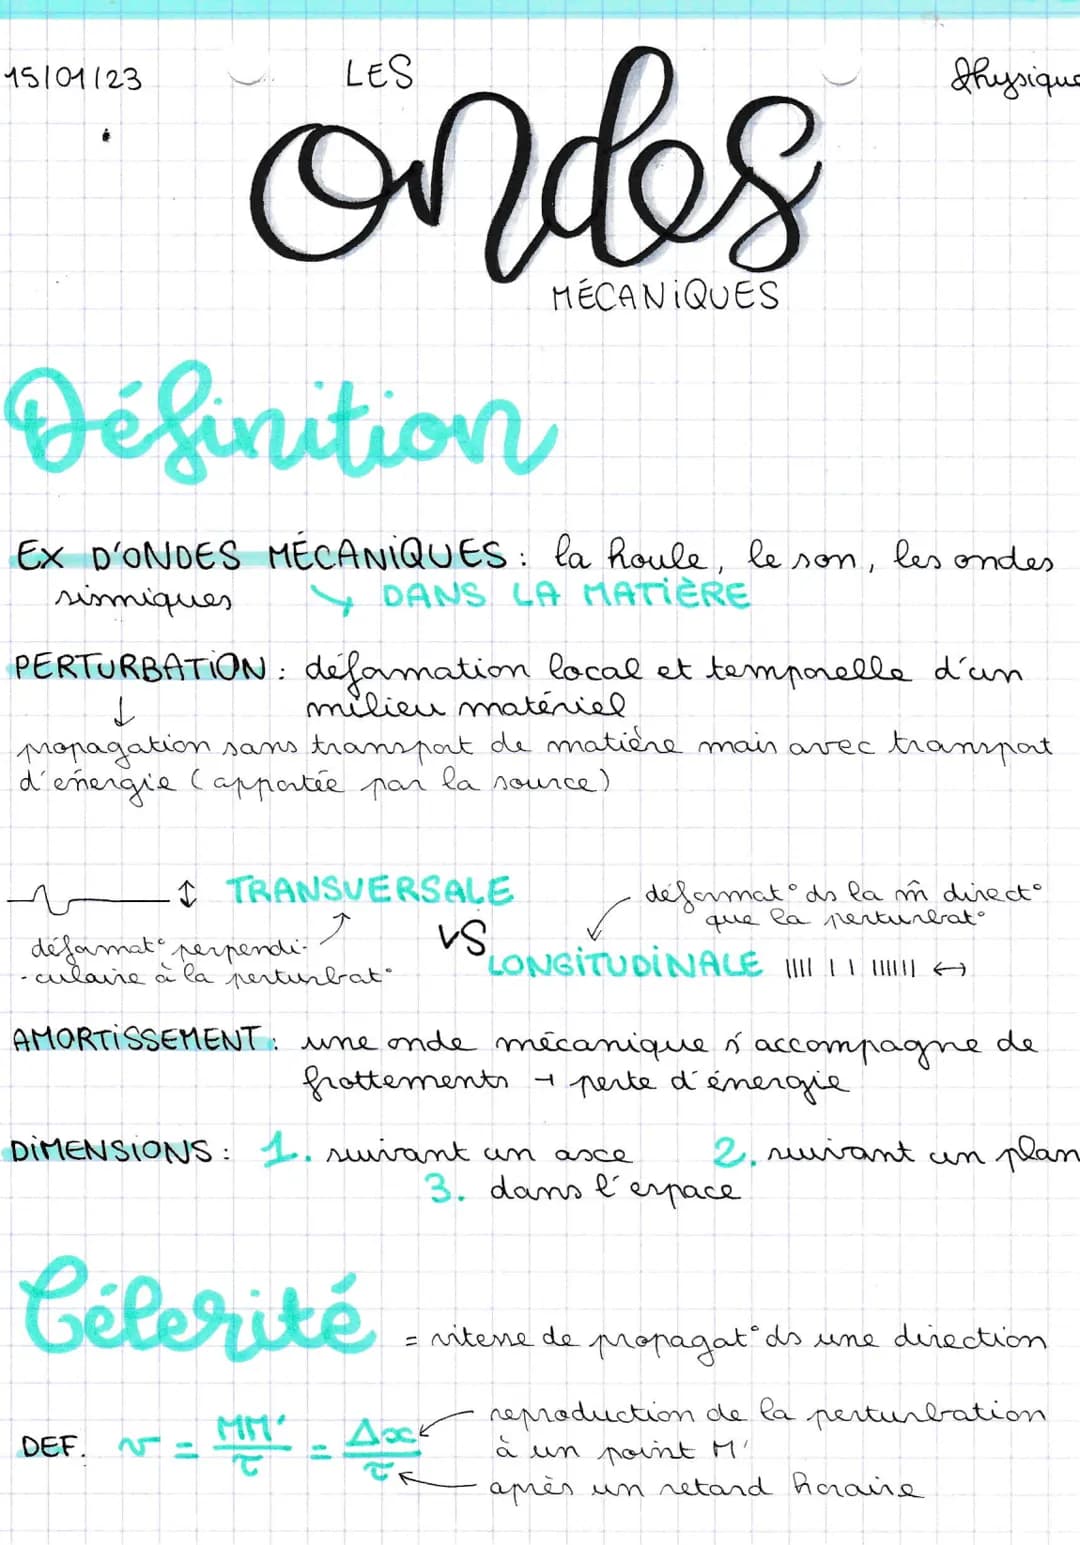 15/01/23 LES Physique
ondes
MÉCANIQUES
Définition
EX D'ONDES MÉCANIQUES : la houle, le son, les ondes
sismiques ↳ DANS LA MATIÈRE
PERTURBATION : déformation local et temporelle d'un
↓ milieu matériel
propagation sans transport de matière mais avec transport
d'énergie (apportée par la source)
↕ TRANSVERSALE
déformat° perpendi-
-culaire à la perturbat°
VS
déformat° ds la m̂ direct°
que la perturbat°
LONGITUDINALE ↔
AMORTISSEMENT : une onde mécanique s'accompagne de
frottements → perte d'énergie
DIMENSIONS : 1. suivant un axe 2. suivant un plan
3. dans l'espace
Célerité = vitesse de propagat° ds une direction
DEF. v = MM'/τ = Δx/τ
reproduction de la perturbation
à un point M'
après un retard horaire